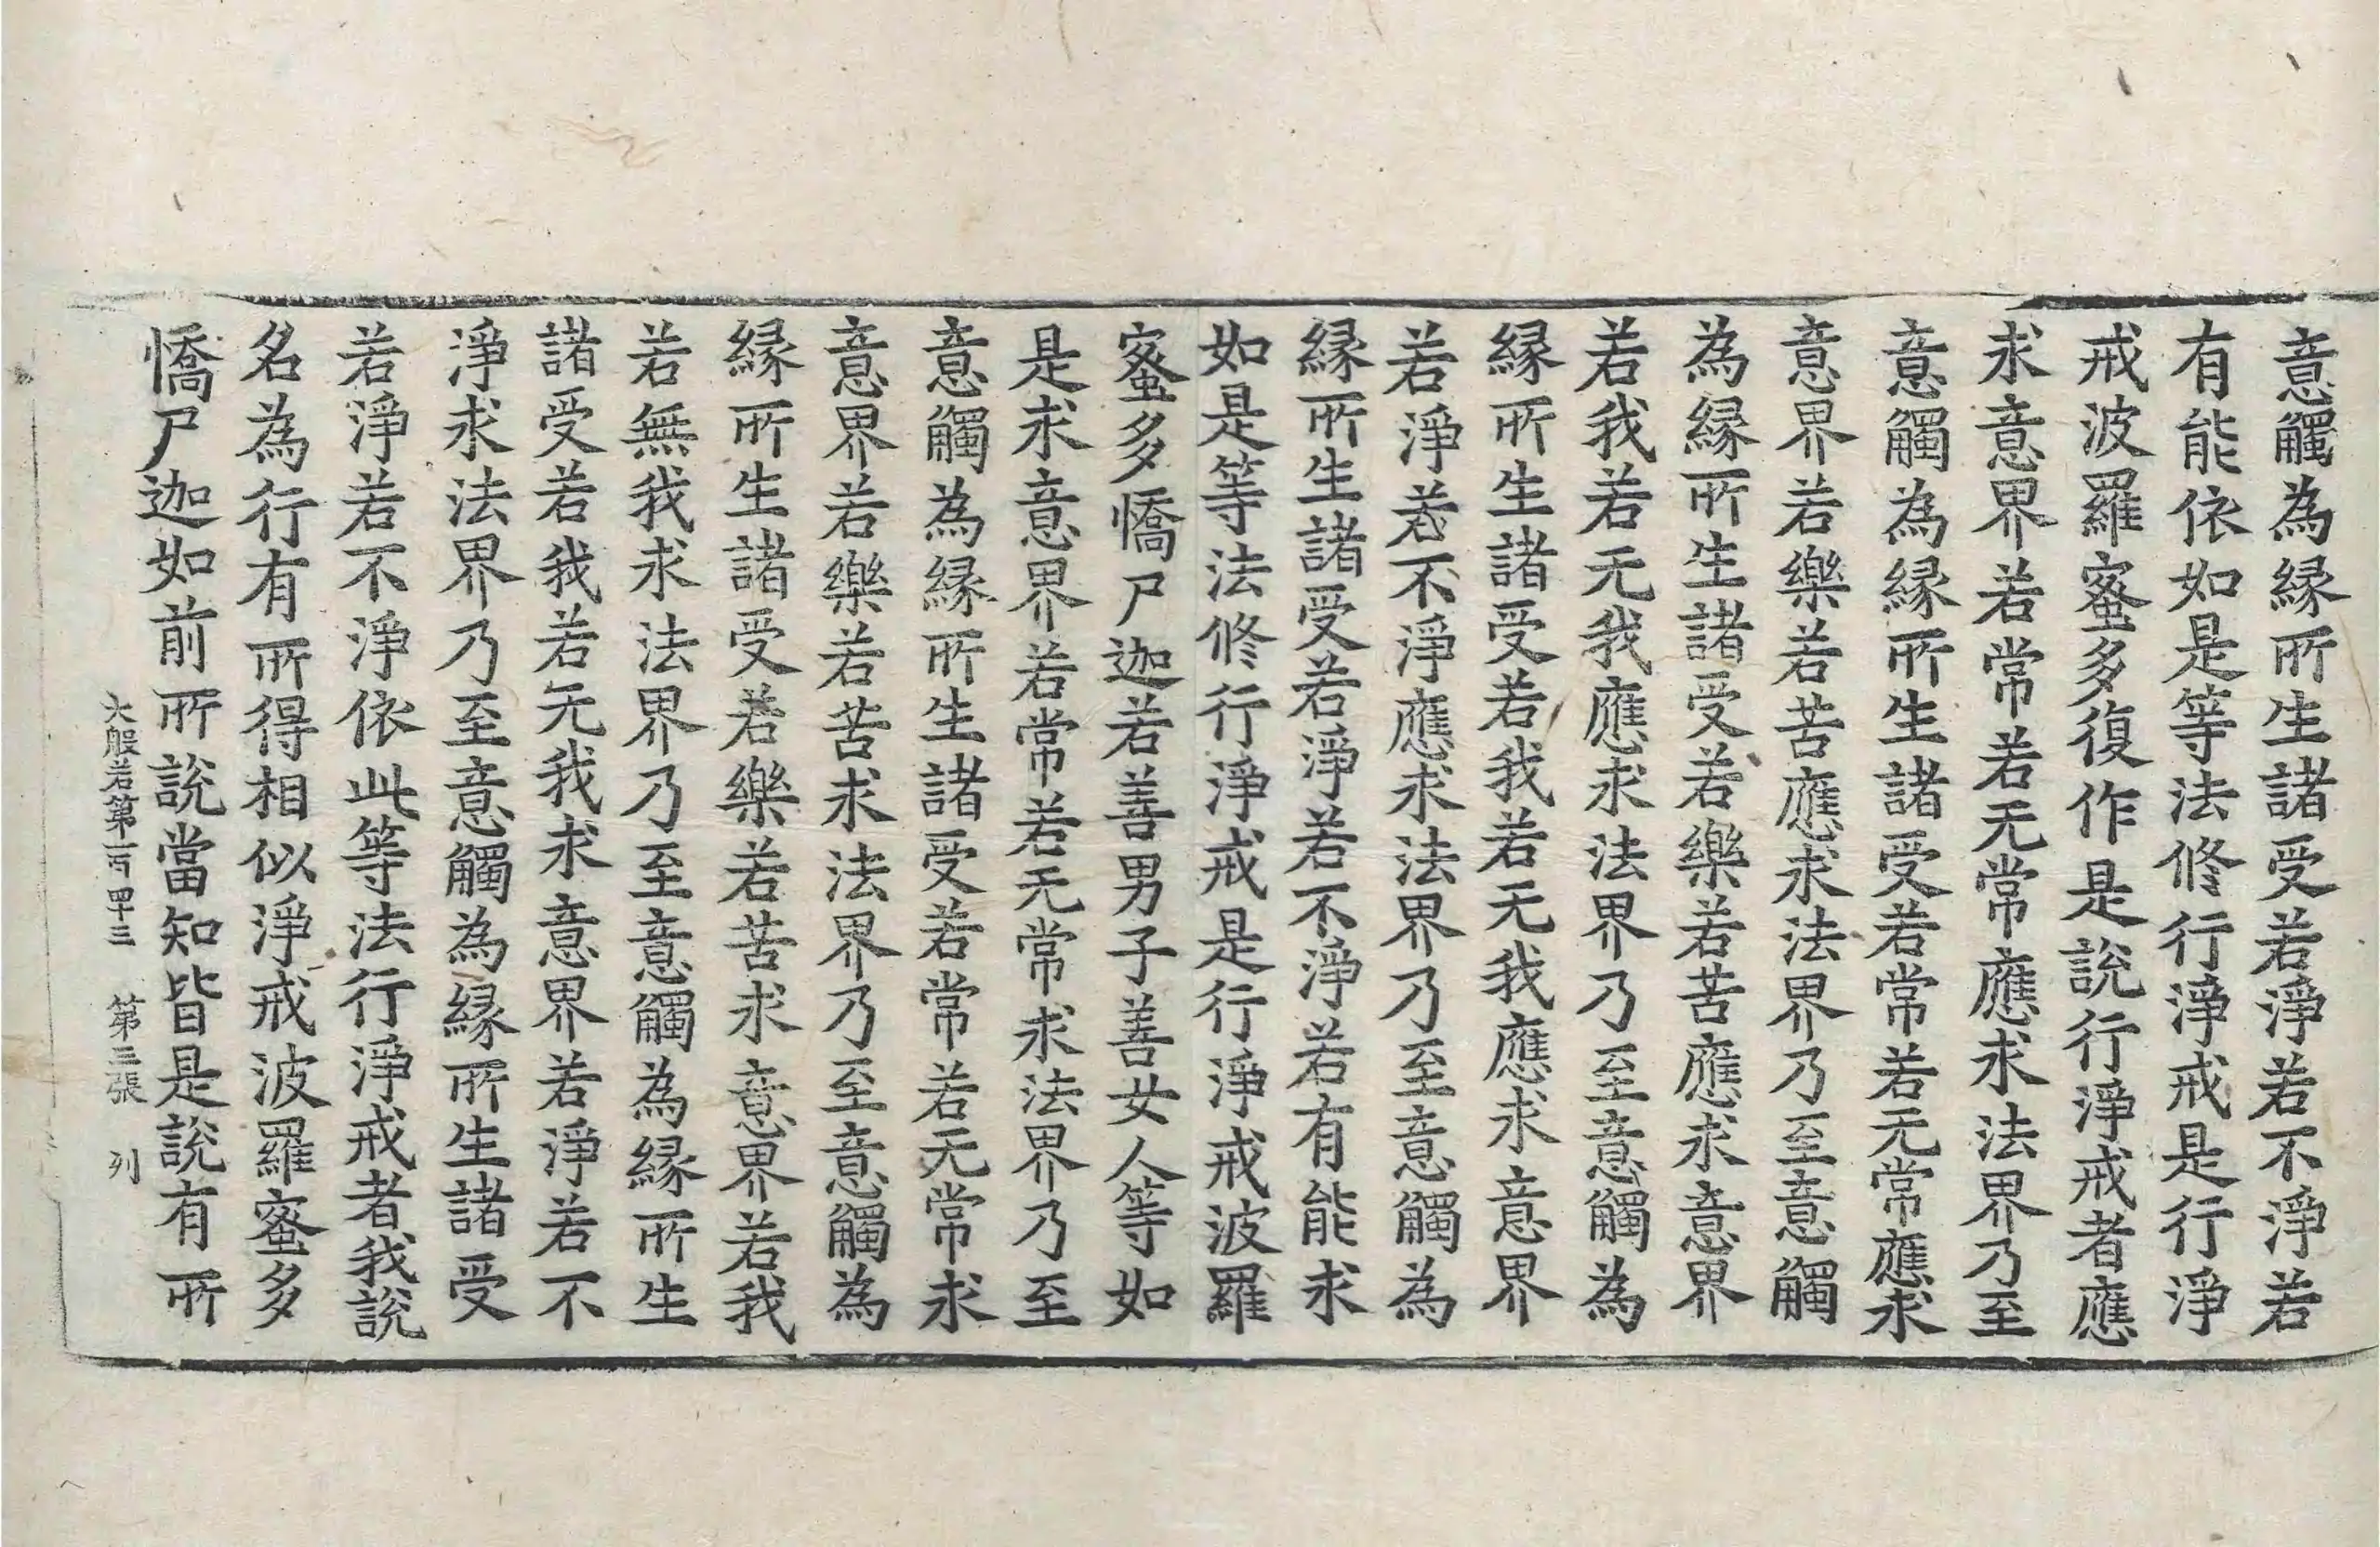 意觸為緣所生諸受若淨若不淨若
有能依如是等法修行淨戒是行淨
戒波羅蜜多復作是說行淨戒者應
求意界若常若无常應求法界乃至
意觸為緣所生諸受若常若无常應求
意界若樂若苦應求法界乃至意觸
為緣所生諸受若樂若苦應求意界
若我若无我應求法界乃至意觸為
緣所生諸受若我若无我應求意界
若淨若不淨應求法界乃至意觸為
緣所生諸受若淨若不淨若有能求
如是等法修行淨戒是行淨戒波羅
蜜多憍尸迦若善男子善女人等如
是求意界若常若无常求法界乃至
意觸為緣所生諸受若常若无常求
意界若樂若苦求法界乃至意觸為
緣所生諸受若樂若苦求意界若我
若無我求法界乃至意觸為緣所生
諸受若我若无我求意界若淨若不
淨求法界乃至意觸為緣所生諸受
若淨若不淨依此等法行淨戒者我說
名為行有所得相似淨戒波羅蜜多
憍尸迦如前所說當知皆是說有所
大般若第一百四十三 第三張 列